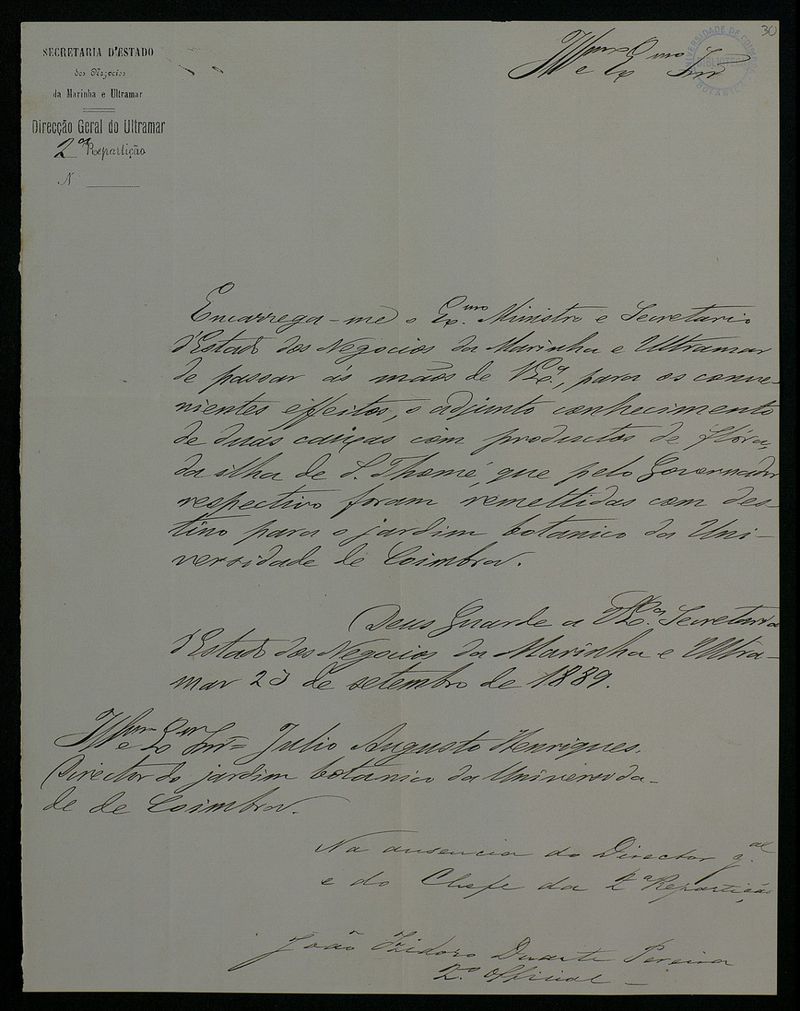 30
SECRETARIA D'ESTADO
dos Negocios
da Marinha e Ultramar
Direcção Geral do Ultramar
2ª Repartição
N
UNIVERSIDADE DE COIMBRA
BIBLIOTECA
BOTANICA
Illmo e Exmo Snr
Encarrega-me o Exmo Ministro e Secretario
d'Estado dos Negocios da Marinha e Ultramar
de passar ás mãos de V. Exª, para os conve-
nientes effeitos, o adjunto conhecimento
de duas caixas com productos de flóra,
da ilha de S. Thomé, que pelo Governador
respectivo foram remettidas com des-
tino para o jardim botanico da Uni-
versidade de Coimbra.
Deus Guarde a V. Exª. Secretaria
d'Estado dos Negocios da Marinha e Ultra-
mar 23 de setembro de 1889.
Illmo e Exmo Snr Julio Augusto Henriques.
Director do jardim botanico da Universida-
de de Coimbra.
Na ausencia do Director gal
e do Chefe da 2ª Repartição
João Izidoro Duarte Pereira
2º Official